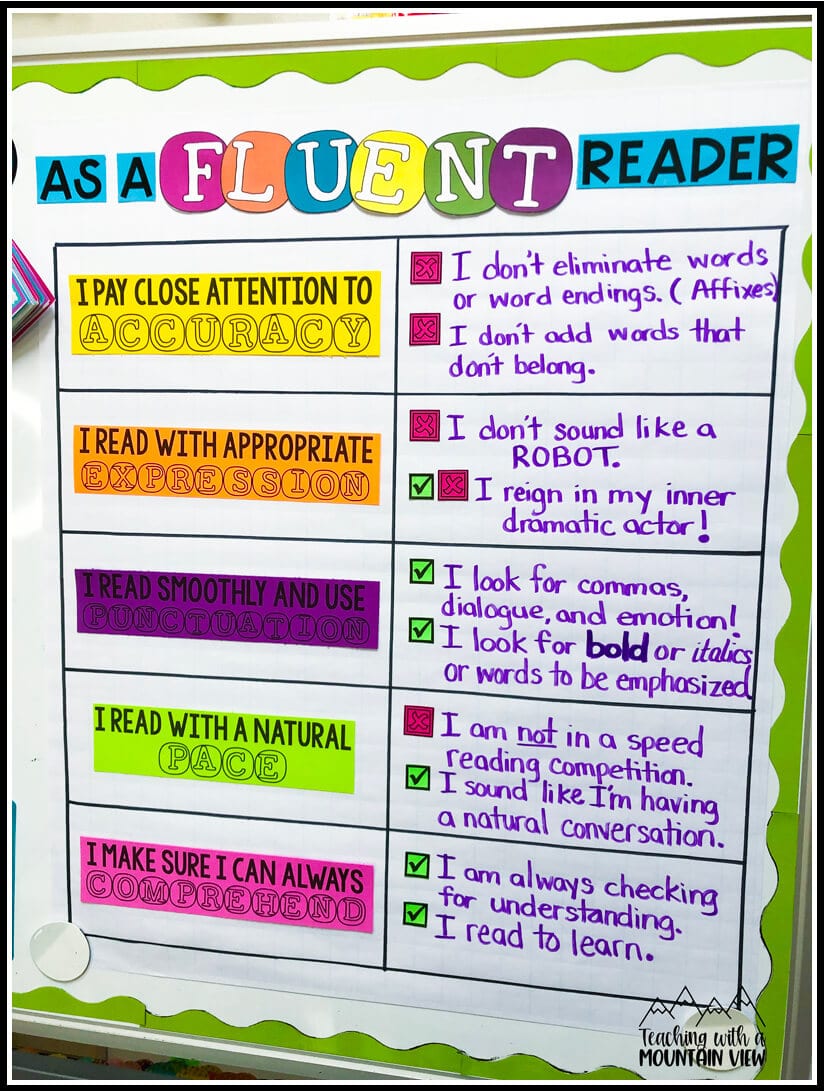 AS A FLUENT READER
I PAY CLOSE ATTENTION TO
ACCURACY
I don't eliminate words
or word endings. (Affixes)
I don't add words that
don't belong.
I READ WITH APPROPRIATE
EXPRESSION
I don't sound like a
ROBOT.
I reign in my inner
dramatic actor!
I READ SMOOTHLY AND USE
PUNCTUATION
I look for commas,
dialogue, and emotion!
I look for bold or italics
or words to be emphasized
I READ WITH A NATURAL
PACE
I am not in a speed
reading competition.
I sound like I'm having
a natural conversation.
I MAKE SURE I CAN ALWAYS
COMPREHEND
I am always checking
for understanding.
I read to learn.
Teaching with a
MOUNTAIN VIEW